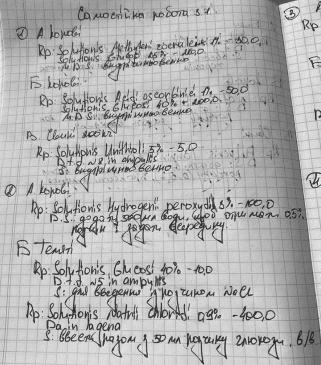 Самостійна робота з 1
① А. корові
Rp: Solutionis Methyleni coerulei 1% - 50,0
Solutionis Glucosi 25% -
M.D.S.: внутрішньовенно
Б. корові
Rp: Solutionis Acidi ascorbinici 1% - 50,0
Solutionis Glucosi 40% - 200,0
M.D.S.: внутрішньовенно
В. Свині 200кг
Rp: Solutionis Unithioli 5% - 5,0
D.t.d. №2 in ampullis
S: внутрішньовенно
② А. корові
Rp: Solutionis Hydrogenii peroxydi 3% - 100,0
D.S.: додати 500мл води, щоб отримати 0,5%
розчин і подати всередину.
Б Теляті
Rp: Solutionis Glucosi 40% - 10,0
D.t.d. №5 in ampullis
S: для введення з розчином NaCl
Rp: Solutionis Natrii chloridi 0,9% - 400,0
Da in lagena
S: ввести разом з 50 мл розчину глюкози, в/в
③
Rp